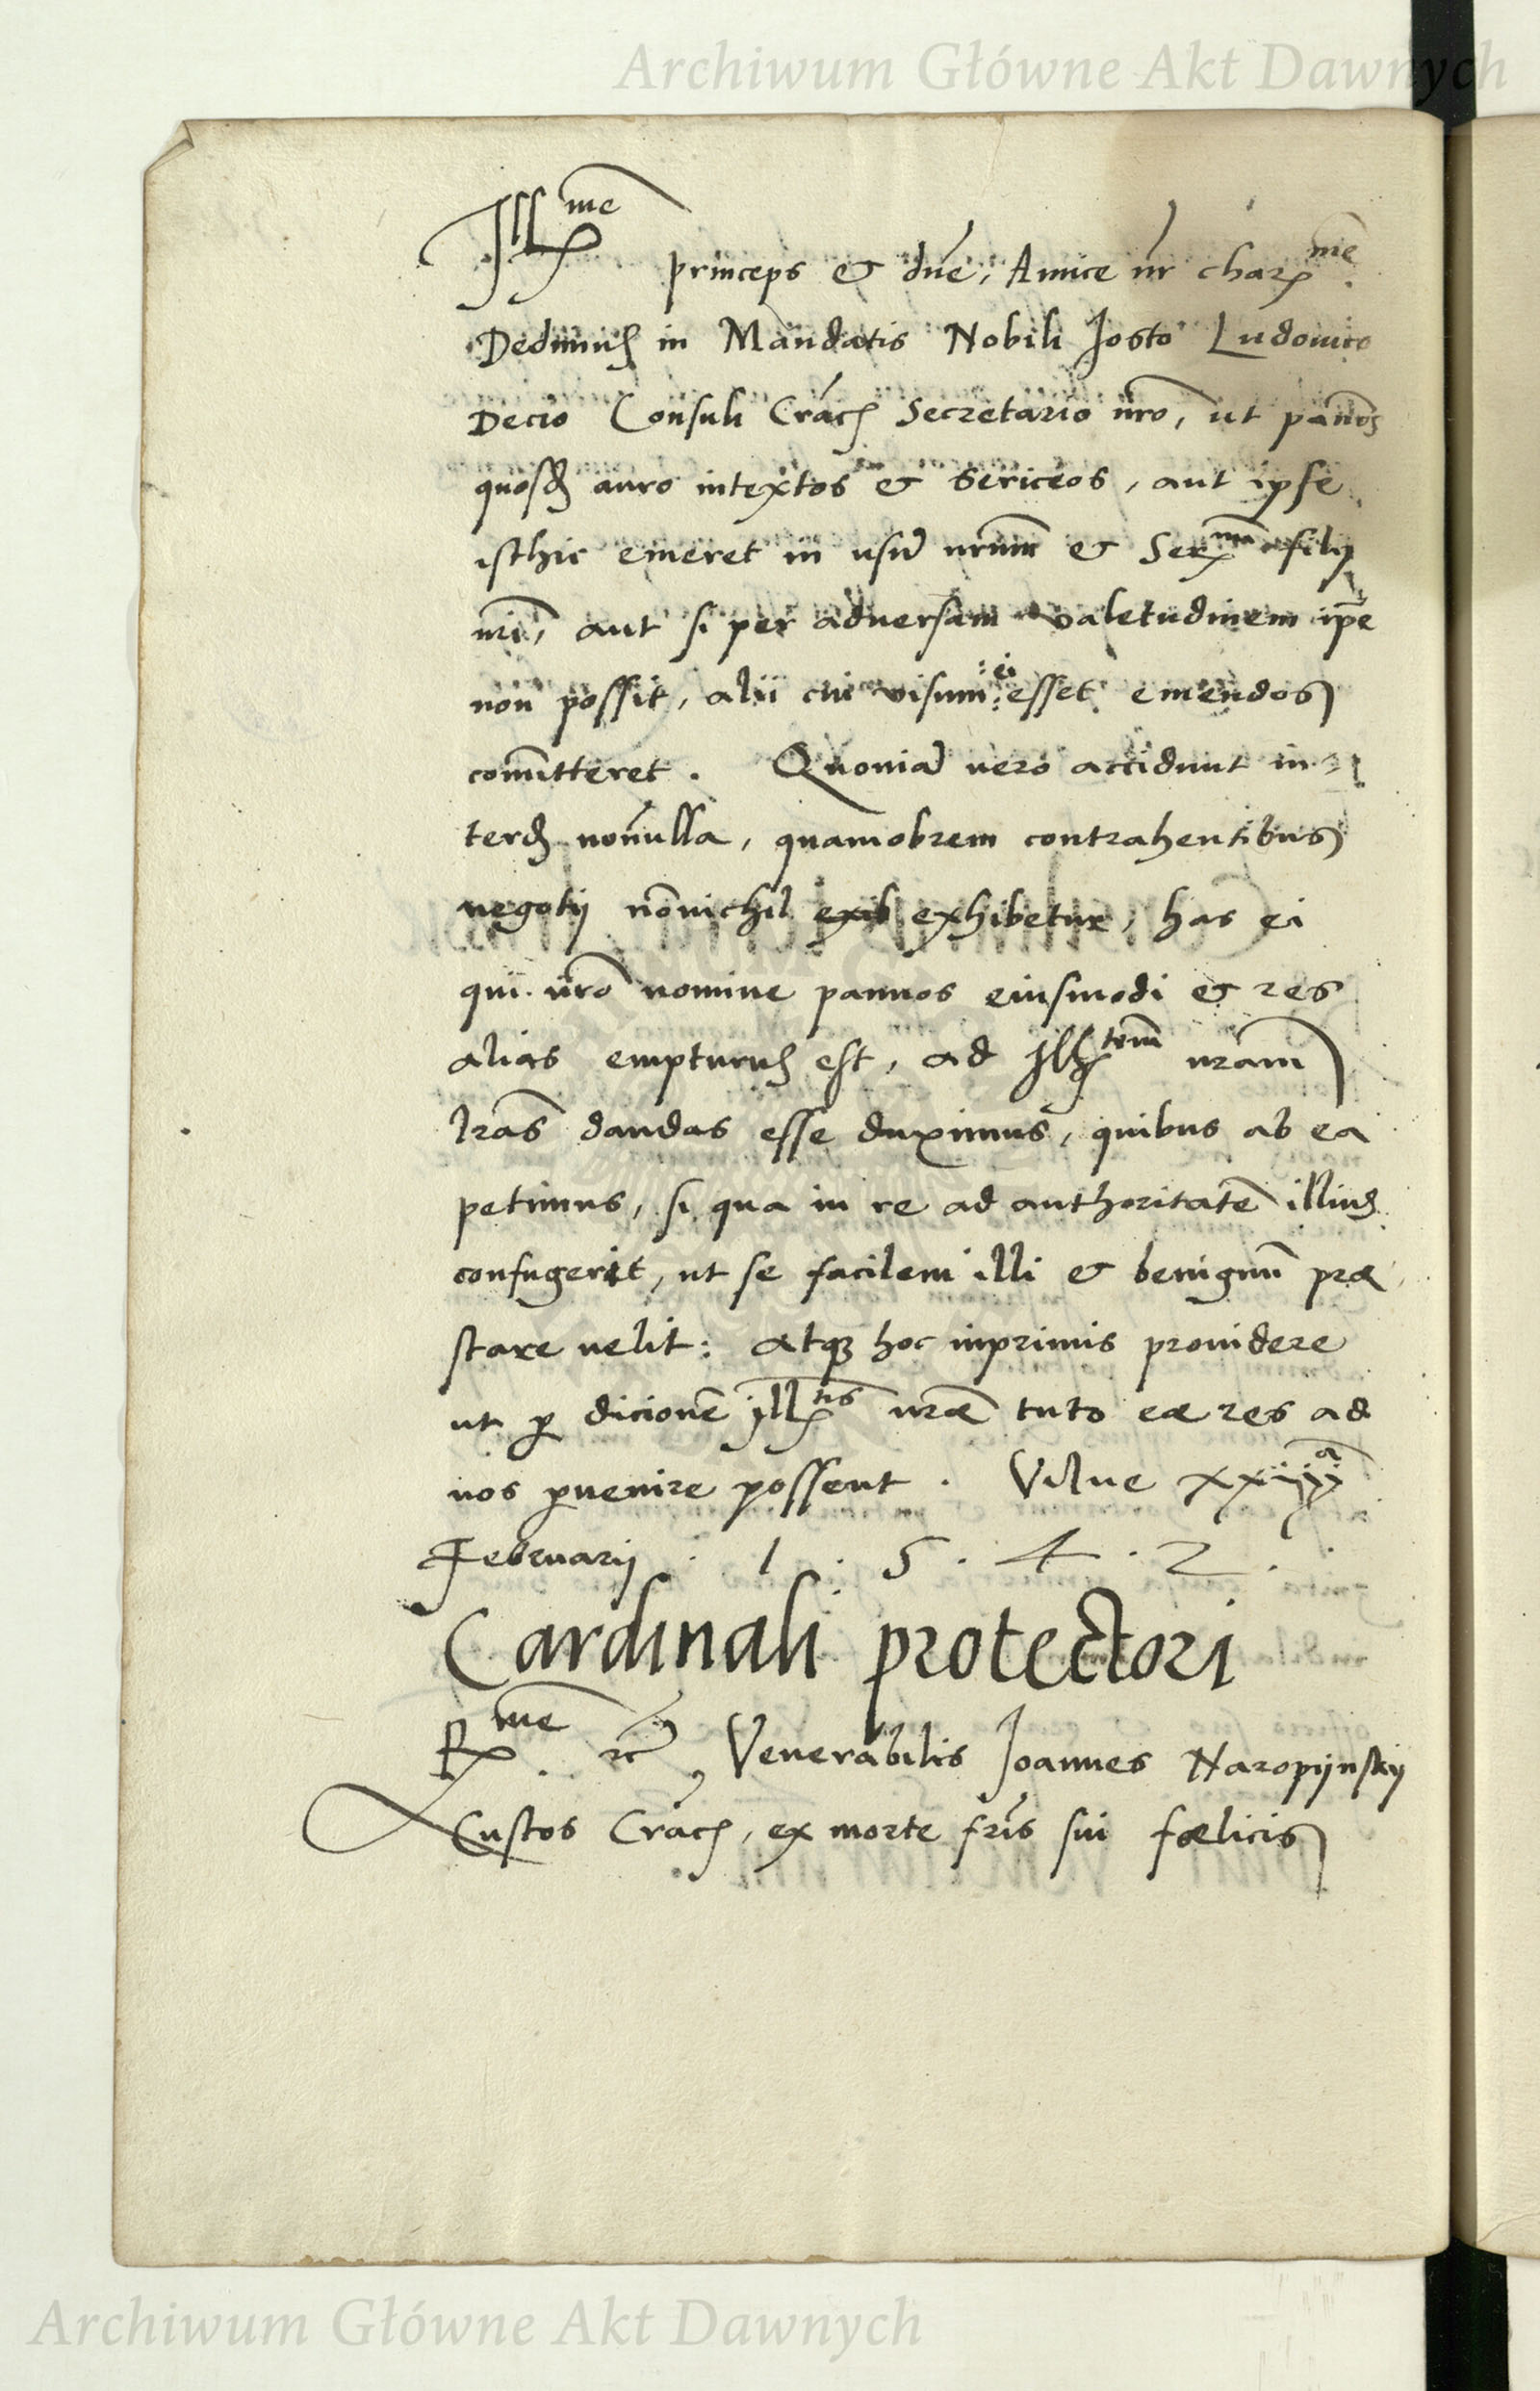 Archiwum Główne Akt Dawnych
Ill^me princeps & dñe, Amice ñr char^me.
Dedimus in Mandatis Nobili Josto Ludovico
Decio Consuli Crac Secretario ñro, ut pannos
quosd auro intextos & sericeos, aut ipse
isthic emeret in usū nrum & Ser^mi filij
nri, aut si per adversam valetudinem ipse
non possit, alii cui visum ei esset emendos
comitteret. Quoniā vero accidunt in-
terd nonnulla, quamobrem contrahentibus
negotij nōnichil exib exhibetur, has ei
qui nrō nomine pannos eiusmodi & res
alias empturus est, ad Ill^tem vram
lras dandas esse duximus, quibus ab ea
petimus, si qua in re ad authoritatē illius
confugerit, ut se facilem illi & benignū præ
stare velit: atq hoc inprimis providere
ut p dicionē Ill^tis vræ tuto eæ res ad
nos pvenire possent. Vilne
Februarij . 1 . 5 . 4 . 2 .
Cardinali protectori
R^me. rc, Venerabilis Joannes Naropijnskij
Custos Crac, ex morte fris sui fœlicis
Archiwum Główne Akt Dawnych